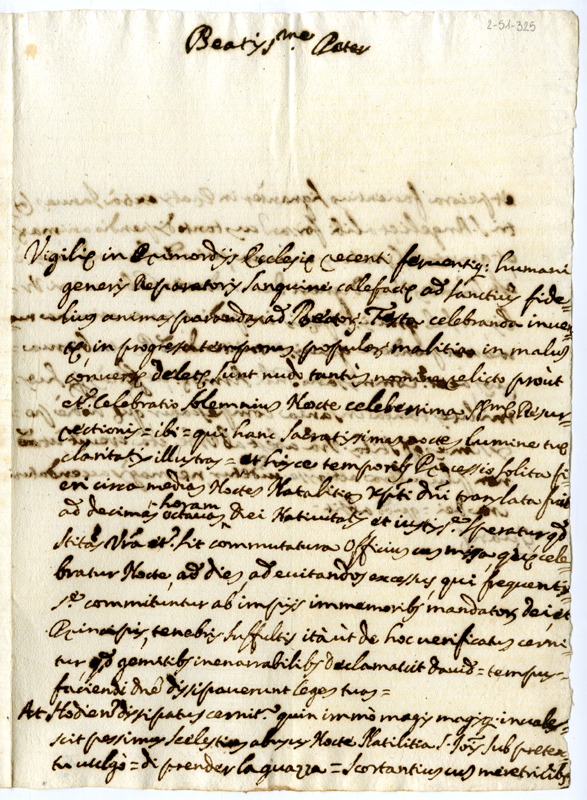 2-51-325
Beatis.me Pater
Vigiliæ in Primordijs Ecclesiæ recenti feruentiq: humani
generis Reparatoris Sanguine calefactæ ad sanctius fide-
lium animas parandas ad Beator. Festa celebranda inuen-
tæ, in progressu temporum populor. malitia in malum
conuersæ deletæ sunt nudo tantum nomine relicto prout
et. Celebratio Solemnium Nocte celeberrima Resur-
rectionis = ibi = qui hanc Sacratissimam noctem lumine tuæ
claritatis illustras = et hisce temporibs Processio solita fi-
eri circa mediam Noctem Natalitiam Xpti dni translata fuit
ad decimam octauam horam Diei Natiuitatis et iustis.e Speratur qd
Stitas Vra et. sit commutatura Officium cum missa, quæ cele-
bratur Nocte, ad diem ad euitandos excessus, qui frequentis-
s.e committuntur ab impijs immemoribs mandator. dei et
Principis, tenebris suffultis ità ut de hoc uerificatum cerni
tur, qd gemitibs inenarrabilibs declamauit dauid = tempus
faciendi dne dissipauerunt leges tuas =
At Hodiern dissipatum cernit.r quin immò magis magisq: inuales-
scit pessimus scelestiam abusus Nocte Natalitia S. Jois sub pretex-
tu uulgò = di prender la guazza = Scortantium cum meretricibs